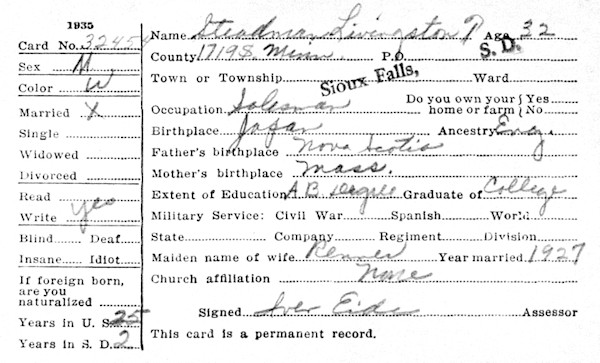 1935
Card No. 32454
Sex M
Color W
Married X
Single
Widowed
Divorced
Read
Write yes
Blind Deaf
Insane Idiot
If foreign born,
are you
naturalized
Years in U. S. 25
Years in S. D. 2
Name Steadman Livingston T Age 32
County 1719 S. Minn. P.O. S. D.
Town or Township Sioux Falls, Ward
Occupation Salesman Do you own your home or farm { Yes { No
Birthplace Japan Ancestry Eng.
Father's birthplace Nova Scotia
Mother's birthplace Mass.
Extent of Education A B Degree Graduate of College
Military Service: Civil War Spanish World
State Company Regiment Division
Maiden name of wife Renner Year married 1927
Church affiliation None
Signed Iver Eide Assessor
This card is a permanent record.